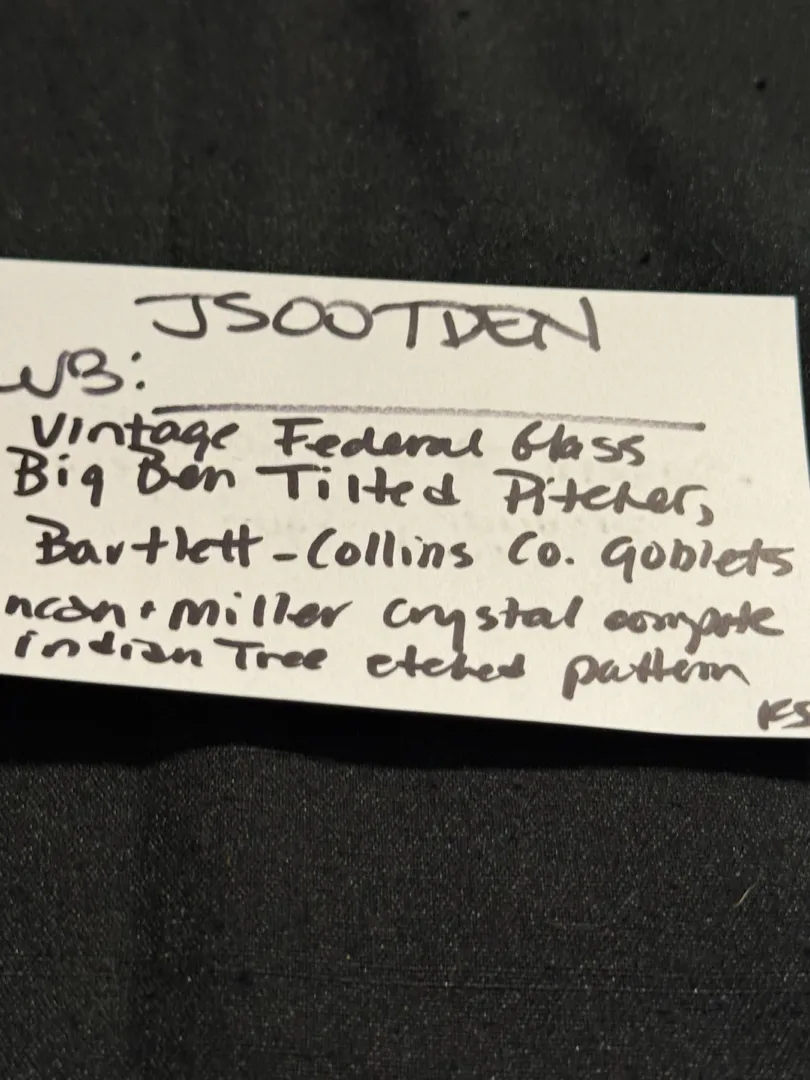 JSOOTDEN
WB:
Vintage Federal Glass
Big Ben Tilted Pitcher,
Bartlett-Collins Co. Goblets
ncan + Miller crystal compote
indian Tree etched pattern
KS